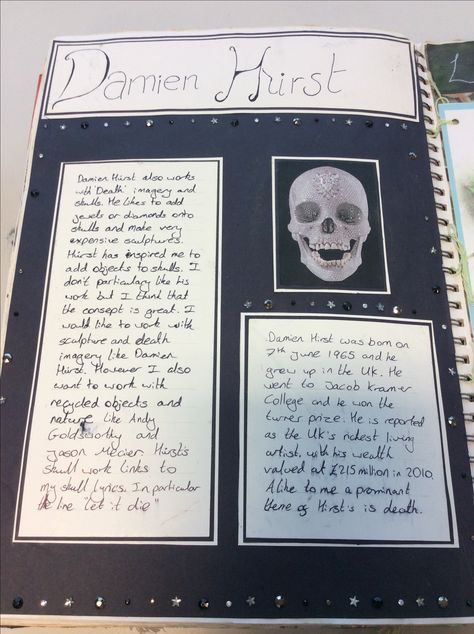 Damien Hurst
L
Damien Hurst also works
with 'Death' imagery and
skulls. He likes to add
jewels or diamonds onto
skulls and make very
expensive sculptures.
Hurst has inspired me to
add objects to skulls. I
don't particulary like his
work but I think that
the concept is great. I
would like to work with
sculpture and death
imagery like Damien
Hurst. However I also
want to work with
recycled objects and
nature like Andy
Goldsworthy and
Jason Mecier Hirst's
Skull work links to
my skull lyrics. In particular
the line "let it die"
Damien Hirst was born on
7th June 1965 and he
grew up in the UK. He
went to Jacob Kramer
College and he won the
turner prize. He is reported
as the UK's richest living
artist, with his wealth
valued at £215 million in 2010.
Alike to me a prominant
theme of Hirst's is death.